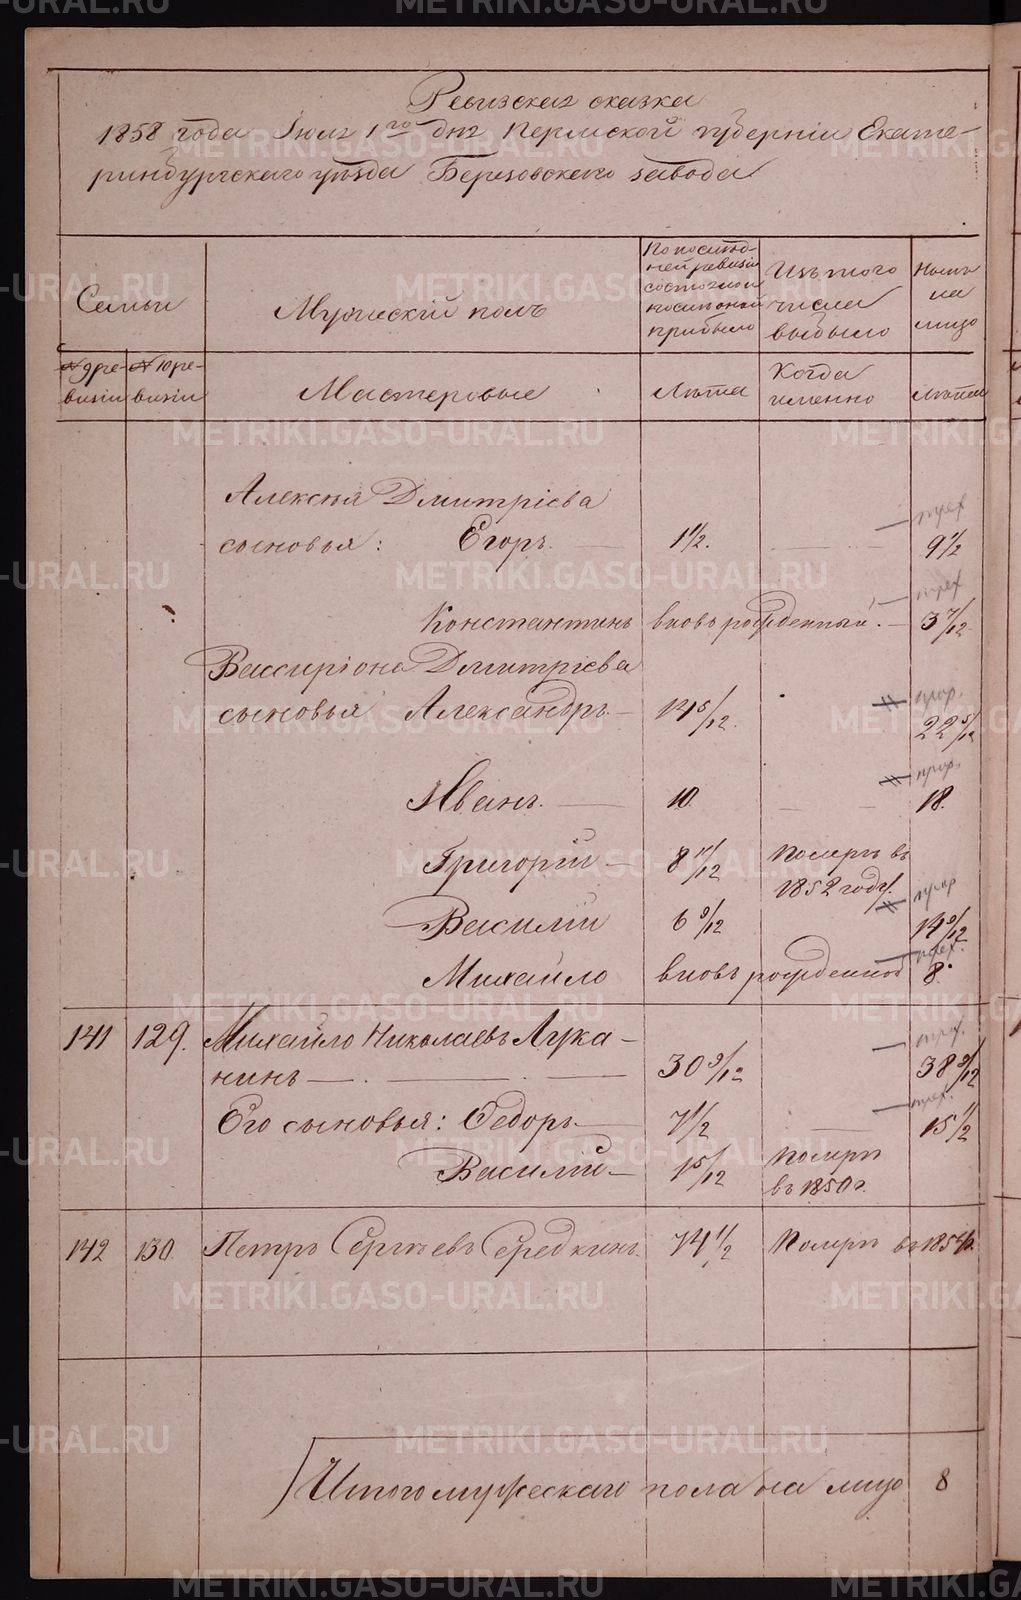 Ревизская сказка
1858 года Июля 1го дня Пермской губернiи Екате-
ринбургскаго уѣзда Березовскаго завода
Семьи
Мужескiй полъ
По послѣд-
ней ревизiи
состояло и
послѣ оной
прибыло
Изъ того
числа
выбыло
Нынѣ
на
лицо
№ 9 ре-
визiи
№ 10 ре-
визiи
Мастеровые
Лѣта
Когда
именно
Лѣта
Алексѣя Дмитрiева
сыновья: Егоръ. 1 1/2. 9 1/2
Константинъ вновь рожденный. 3 7/12
Виссарiона Дмитрiева
сыновья Александръ 14 5/12. 22 5/12
Иванъ. 10. 18.
Григорiй 8 11/12 Померъ въ
1852 году.
Василiй 6 9/12 14 9/12
Михайло вновь рожденной 8.
141 129. Михайло Николаевъ Лука-
нинъ 30 9/12 38 9/12
Его сыновья: Федоръ 7 1/2 15 1/2
Василiй 1 5/12 Померъ
въ 1850 г.
142 130. Петръ Сергѣевъ Середкинъ. 74 1/2 Померъ въ
Итого мужескаго пола на лицо 8
METRIKI.GASO-URAL.RU